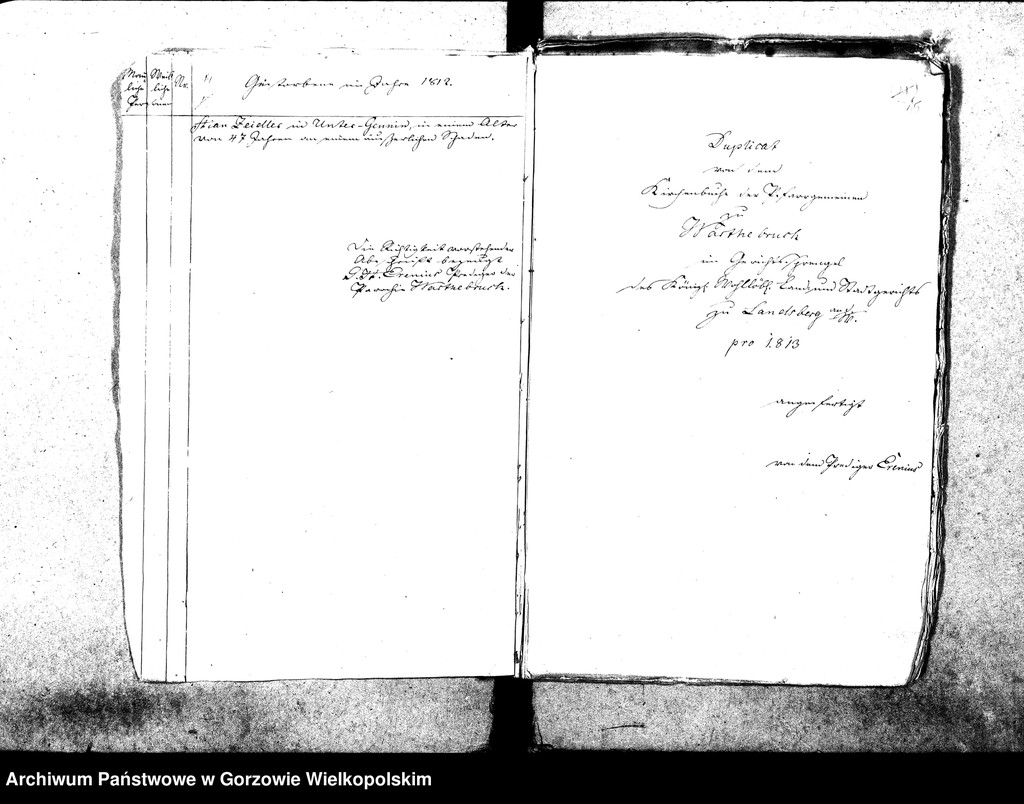 Männ Weib Nr.
liche liche
Personen
Gestorbene im Jahre 1812.
stian Zeidler in Unter-Gennin, in einem Alter
von 47 Jahren an einem äußerlichen Schaden.
Die Richtigkeit vorstehender
Abschrift bezeugt
Crenius Prediger der
Parochie Warthebruch.
Duplicat
von dem
Kirchenbuche der Pfarrgemeinen
zu
Warthebruch
im Gerichtssprengel
des Königl. Wohllöbl. Land und Stadtgerichts
zu Landsberg a/W.
pro 1813
angefertigt
von dem Prediger Crenius
Archiwum Państwowe w Gorzowie Wielkopolskim